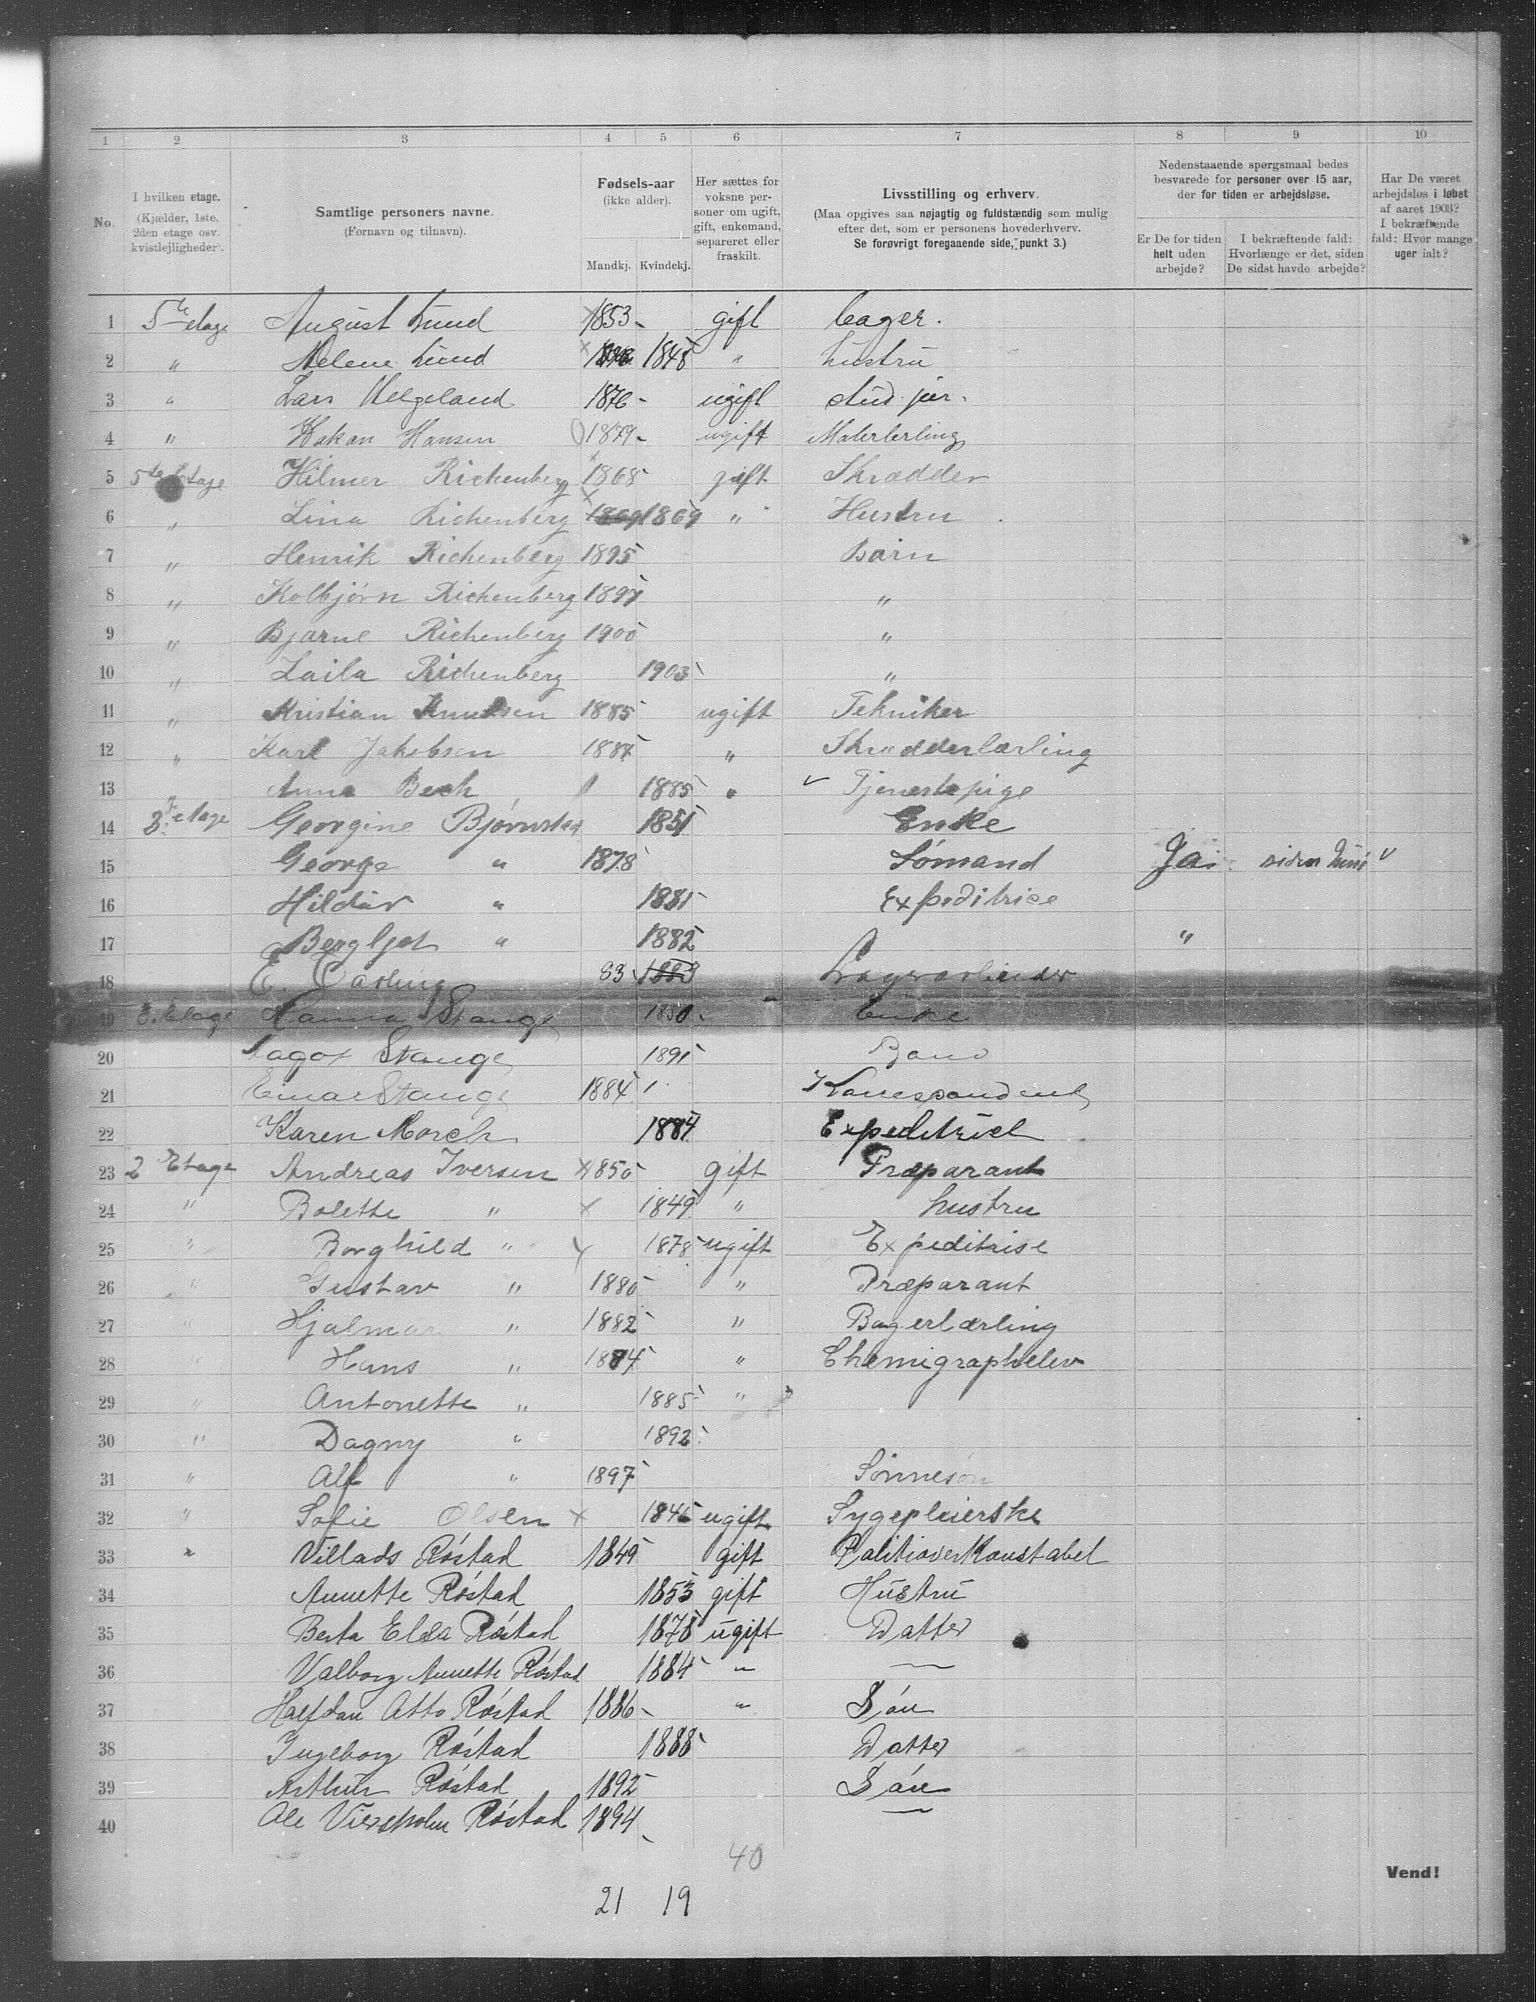 1 2 3 4 5 6 7 8 9 10
No.
I hvilken etage. (Kjælder, 1ste, 2den etage osv. kvistlejligheder).
Samtlige personers navne. (Fornavn og tilnavn).
Fødsels-aar (ikke alder). Mandkj. Kvindekj.
Her sættes for voksne personer om ugift, gift, enkemand, separeret eller fraskilt.
Livsstilling og erhverv. (Maa opgives saa nøjagtig og fuldstændig som mulig efter det, som er personens hovederhverv. Se forøvrigt foregaaende side, punkt 3.)
Nedenstaaende spørgsmaal bedes besvarede for personer over 15 aar, der for tiden er arbejdsløse.
Er De for tiden helt uden arbejde?
I bekræftende fald: Hvorlænge er det, siden De sidst havde arbejde?
Har De været arbejdsløs i løbet af aaret 1903? I bekræftende fald: Hvor mange uger ialt?
1 5te etage August Lund 1853 gift Bager.
2 " Helene Lund 1848 " hustru
3 " Lars Helgeland 1876 ugift stud. jur.
4 " Hakon Hansen 1879 ugift Malerlerling
5 5te Etage Hilmer Richenberg 1868 gift Skrædder
6 " Lina Richenberg 1869 1869 " Hustru
7 " Henrik Richenberg 1895 Barn
8 " Kolbjørn Richenberg 1897 "
9 " Bjarne Richenberg 1900 "
10 " Laila Richenberg 1903 "
11 " Kristian Knudsen 1885 ugift Tekniker
12 " Karl Jakobsen 1887 " Skrædderlærling
13 " Anna Bech 1885 " Tjenestepige
14 3 etage Georgine Bjørnstad 1851 Enke
15 George " 1878 Sømand Ja siden Juni
16 Hildur " 1881 Expeditrice
17 Bergljot " 1882 "
18 E. 83 1883
19 3. Etage Hanna Stange 1850 Enke
20 Stange 1891
21 Einar Stange 1884 Korrespondent
22 Karen Morch 1884 Expeditrice
23 2 Etage Andreas Iversen 1850 gift Præparant
24 " Bolette " 1849 " hustru
25 " Borghild " 1878 ugift Expeditrise
26 " Gustav " 1880 " Præparant
27 " Hjalmar " 1882 " Bagerlærling
28 " Hans " 1884 " Chemigraphelev
29 " Antonette " 1885 "
30 " Dagny " 1892
31 " Alf " 1897 Sønnesøn
32 " Sofie Olsen 1846 ugift Sygepleierske
33 " Villads Røstad 1849 gift Politioverkonstabel
34 Annette Røstad 1853 gift Hustru
35 Berta Elda Røstad 1878 ugift Datter
36 Valborg Annette Røstad 1884 " —
37 Halfdan Otto Røstad 1886 " Søn
38 Ingeborg Røstad 1888 Datter
39 Arthur Røstad 1892 Søn
40 Ole Røstad 1894 —
40
Vend!
21 19